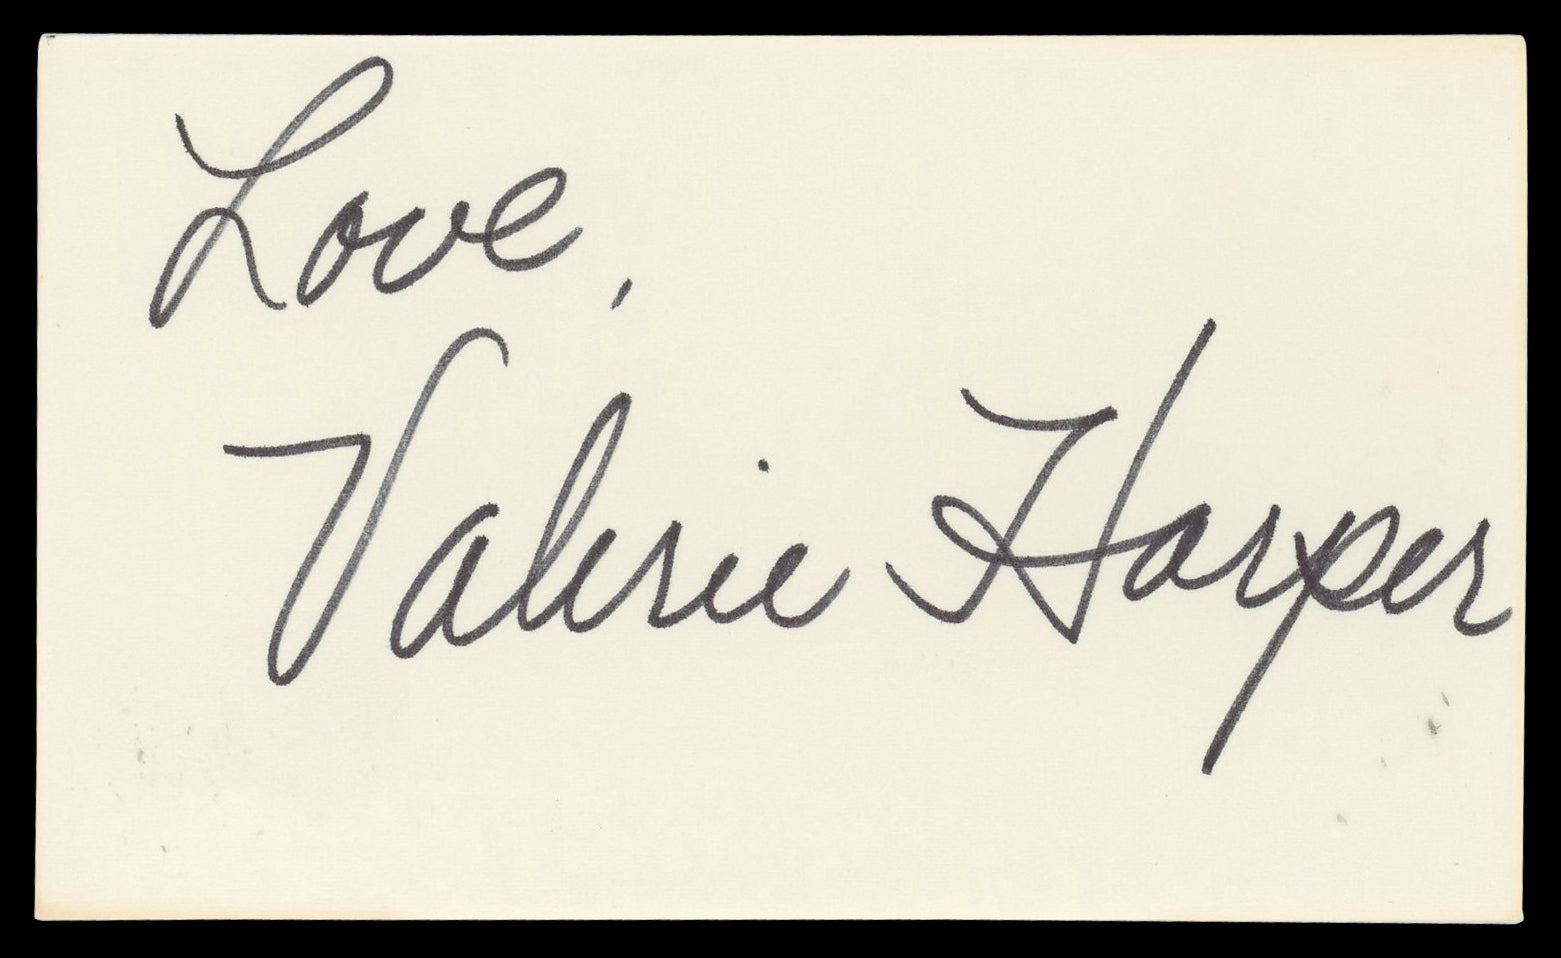 Love,
Valerie Harper